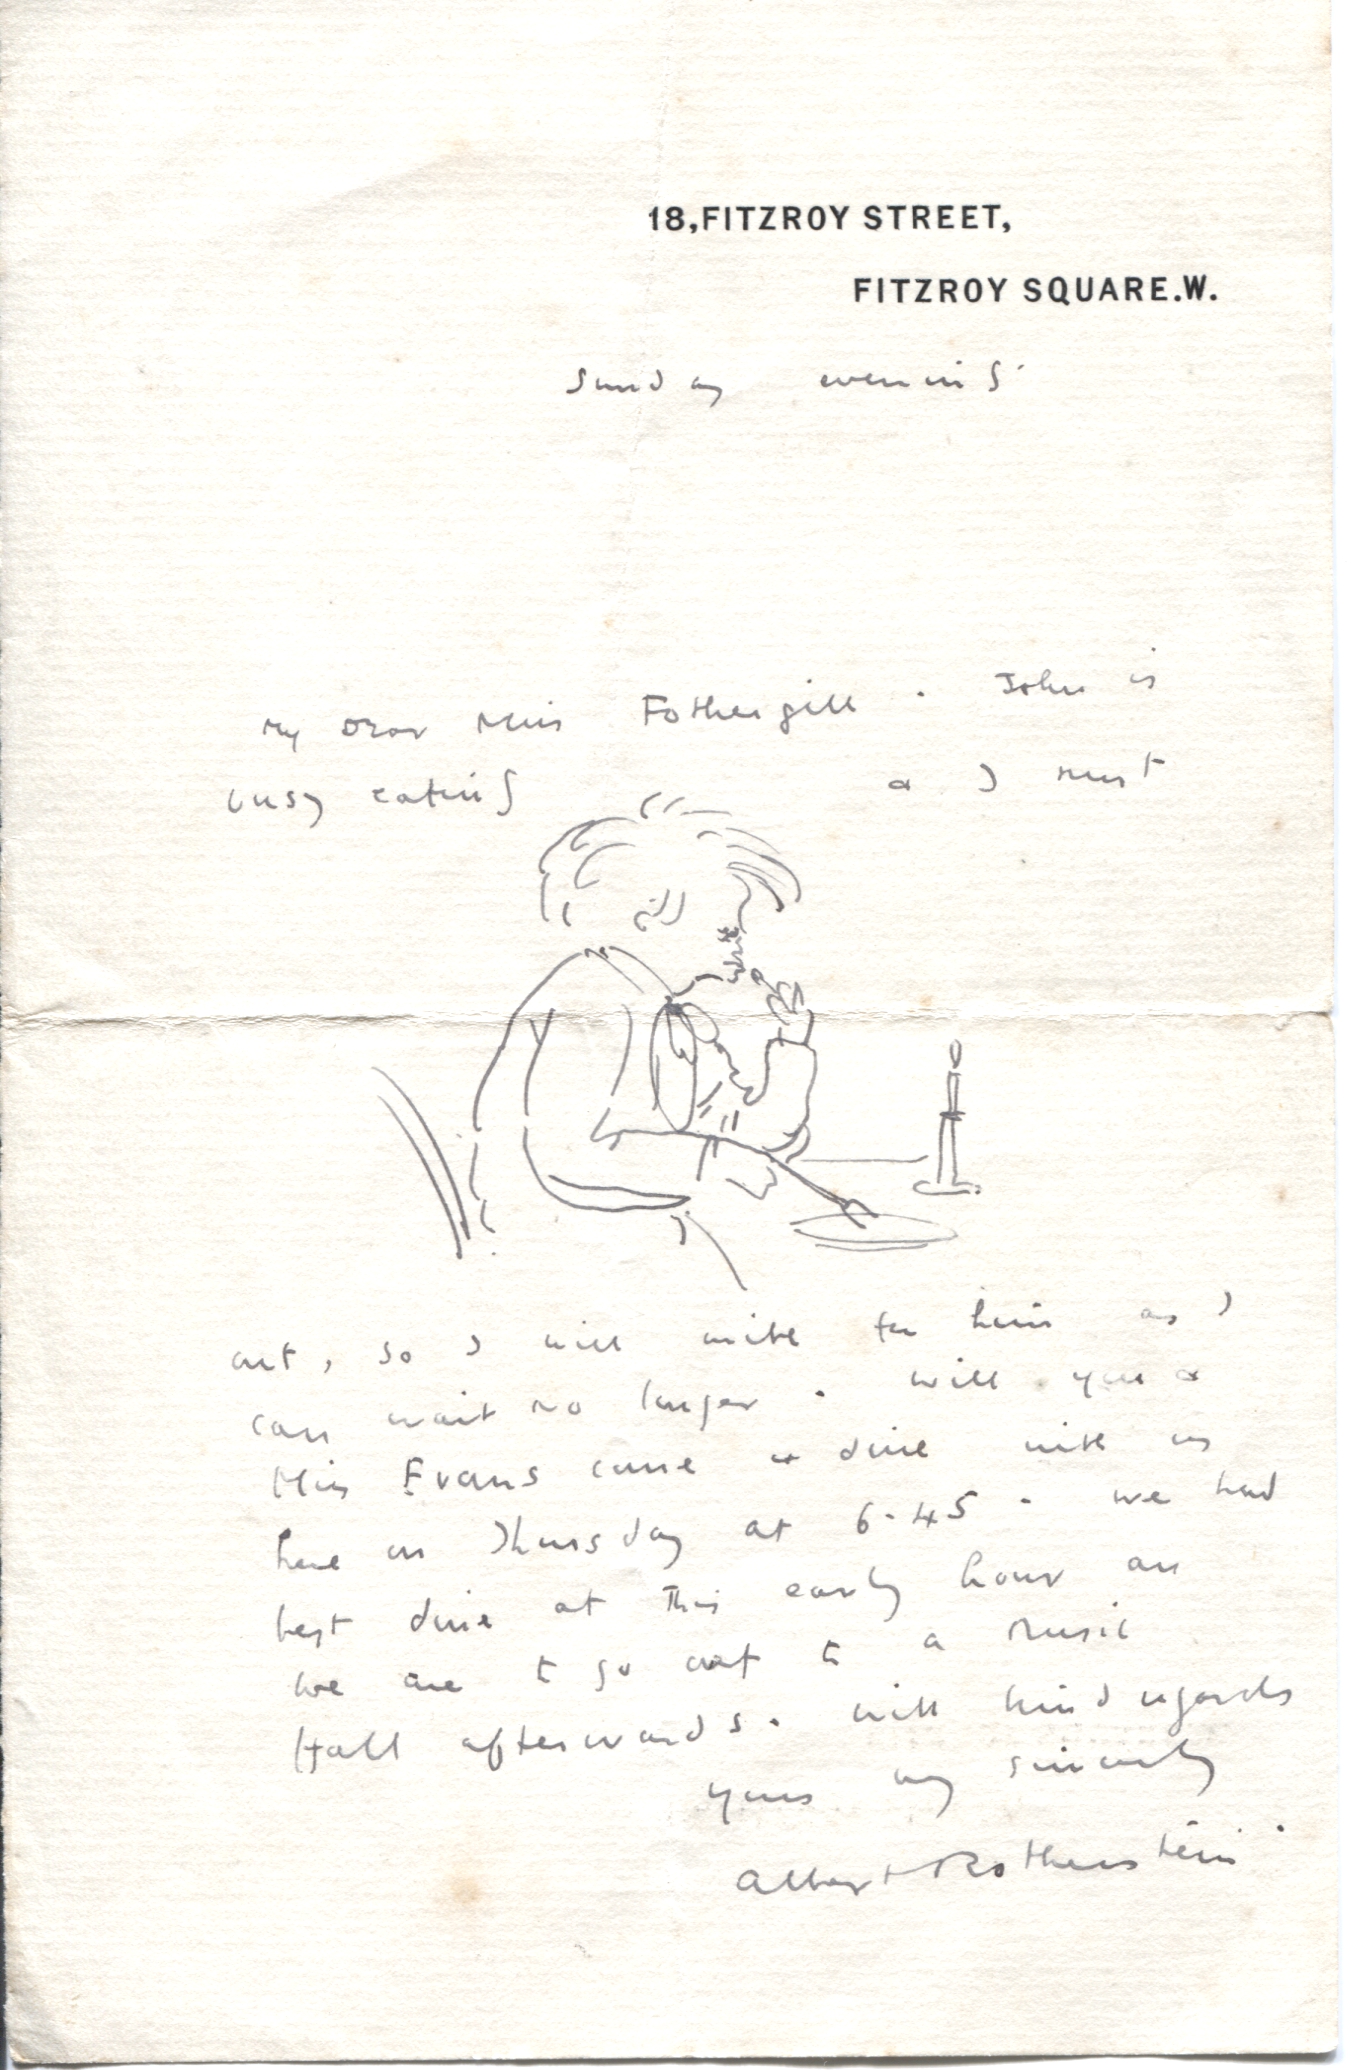 18, FITZROY STREET,
FITZROY SQUARE. W.
Sunday evening.
My Dear Miss Fothergill. John is
busy eating & I must
out, so I will write for him as I
can wait no longer. Will you &
Miss Evans come & dine with us
here on Thursday at 6.45. We had
best dine at this early hour as
we are to go out to a Music
Hall afterwards. With kind regards
yours very sincerely
Albert Rothenstein.